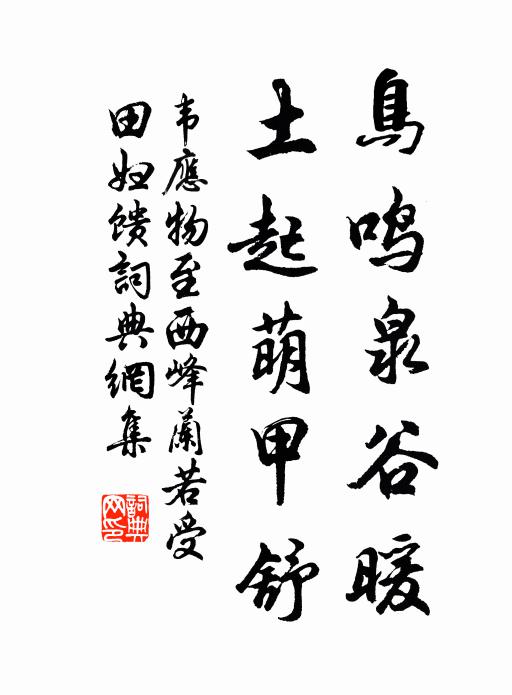 鳥鸣泉谷暖
土起萌甲舒
韦應物至西峰蘭若受
田妇馈詞典網集
詞典
网印